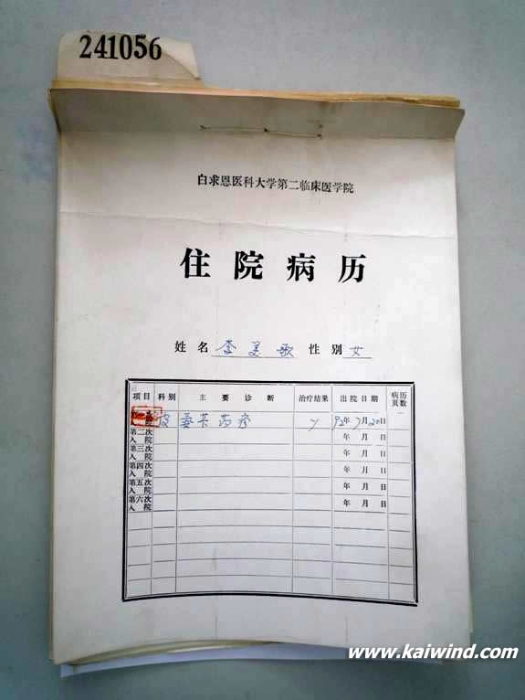 241056
白求恩医科大学第二临床医学院
住院病历
姓名 李美歌 性别 女
项目 科别 主要诊断 治疗结果 出院日期 病历页数
皮 荨 药疹 92年7月20日
第二次入院 年 月 日
第三次入院 年 月 日
第四次入院 年 月 日
第五次入院 年 月 日
第六次入院 年 月 日
www.kaiwind.com